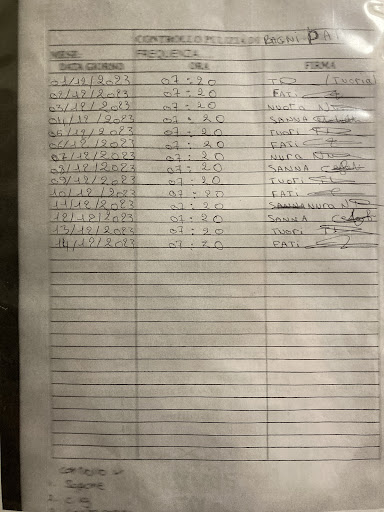 CONTROLLO PULIZIA DI BAGNI PAT
MESE: FREQUENZA
DATA GIORNO ORA FIRMA
01/12/2023 07:20 TD (TUORI)
02/12/2023 07:20 FATI
03/12/2023 07:20 NURA
04/12/2023 07:20 SANNA
05/12/2023 07:20 TUORI
06/12/2023 07:20 FATI
07/12/2023 07:20 NURA
08/12/2023 07:20 SANNA
09/12/2023 07:20 TUORI
10/12/2023 07:20 FATI
11/12/2023 07:20 SANNA NURA
12/12/2023 07:20 SANNA
13/12/2023 07:20 TUORI
14/12/2023 07:20 FATI
1. Sapone
2.
3.